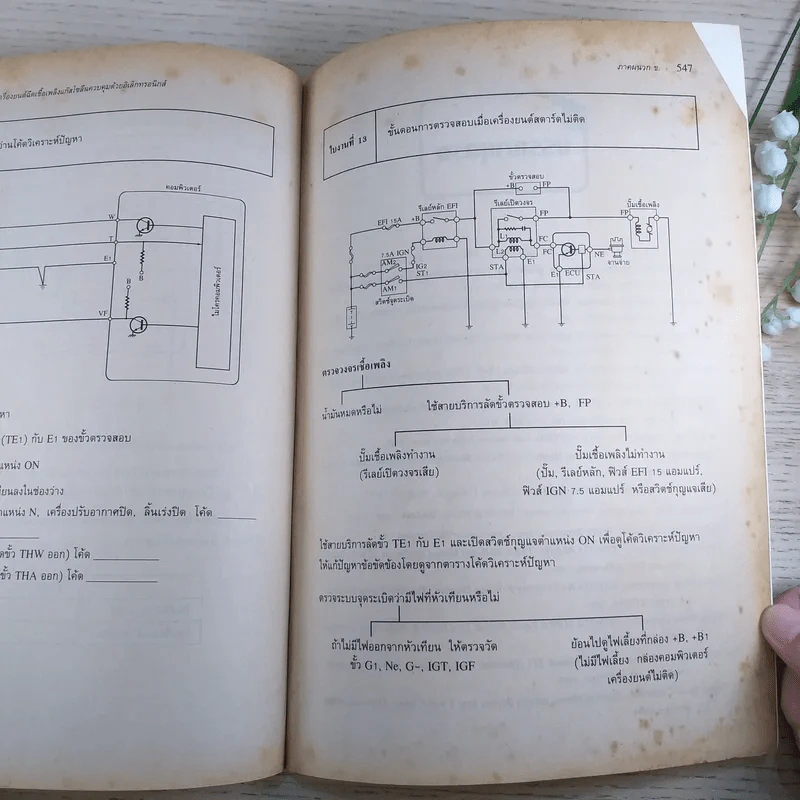 เครื่องยนต์ฉีดเชื้อเพลิงแก๊สโซลีนควบคุมด้วยอิเล็กทรอนิกส์
คอมพิวเตอร์
W
T
E1
B
B
VF
ไมโครคอมพิวเตอร์
(TE1) กับ E1 ของขั้วตรวจสอบ
ON
แหน่ง N, เครื่องปรับอากาศปิด, ลิ้นเร่งปิด โค้ด
ขั้ว THW ออก) โค้ด
ขั้ว THA ออก) โค้ด
ภาคผนวก ข. 547
ใบงานที่ 13
ขั้นตอนการตรวจสอบเมื่อเครื่องยนต์สตาร์ตไม่ติด
ขั้วตรวจสอบ
+B FP
รีเลย์หลัก EFI
รีเลย์เปิดวงจร
ปั๊มเชื้อเพลิง
EFI 15A
+B
FP
FP
7.5A IGN
AM2
IG2
ST1
AM1
สวิตช์จุดระเบิด
L1
L2
STA
E1
FC
FC
E1
ECU
STA
NE
จานจ่าย
ตรวจวงจรเชื้อเพลิง
น้ำมันหมดหรือไม่
ใช้สายบริการลัดขั้วตรวจสอบ +B, FP
ปั๊มเชื้อเพลิงทำงาน
(รีเลย์เปิดวงจรเสีย)
ปั๊มเชื้อเพลิงไม่ทำงาน
(ปั๊ม, รีเลย์หลัก, ฟิวส์ EFI 15 แอมแปร์,
ฟิวส์ IGN 7.5 แอมแปร์ หรือสวิตช์กุญแจเสีย)
ใช้สายบริการลัดขั้ว TE1 กับ E1 และเปิดสวิตช์กุญแจตำแหน่ง ON เพื่อดูโค้ดวิเคราะห์ปัญหา
ให้แก้ปัญหาข้อขัดข้องโดยดูจากตารางโค้ดวิเคราะห์ปัญหา
ตรวจระบบจุดระเบิดว่ามีไฟที่หัวเทียนหรือไม่
ถ้าไม่มีไฟออกจากหัวเทียน ให้ตรวจวัด
ขั้ว G1, Ne, G–, IGT, IGF
ย้อนไปดูไฟเลี้ยงที่กล่อง +B, +B1
(ไม่มีไฟเลี้ยง กล่องคอมพิวเตอร์
เครื่องยนต์ไม่ติด)